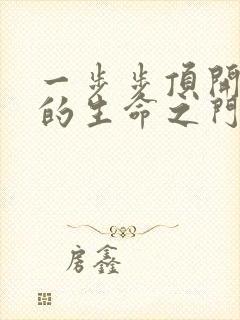 一步步頂開
的生命之門
房鑫